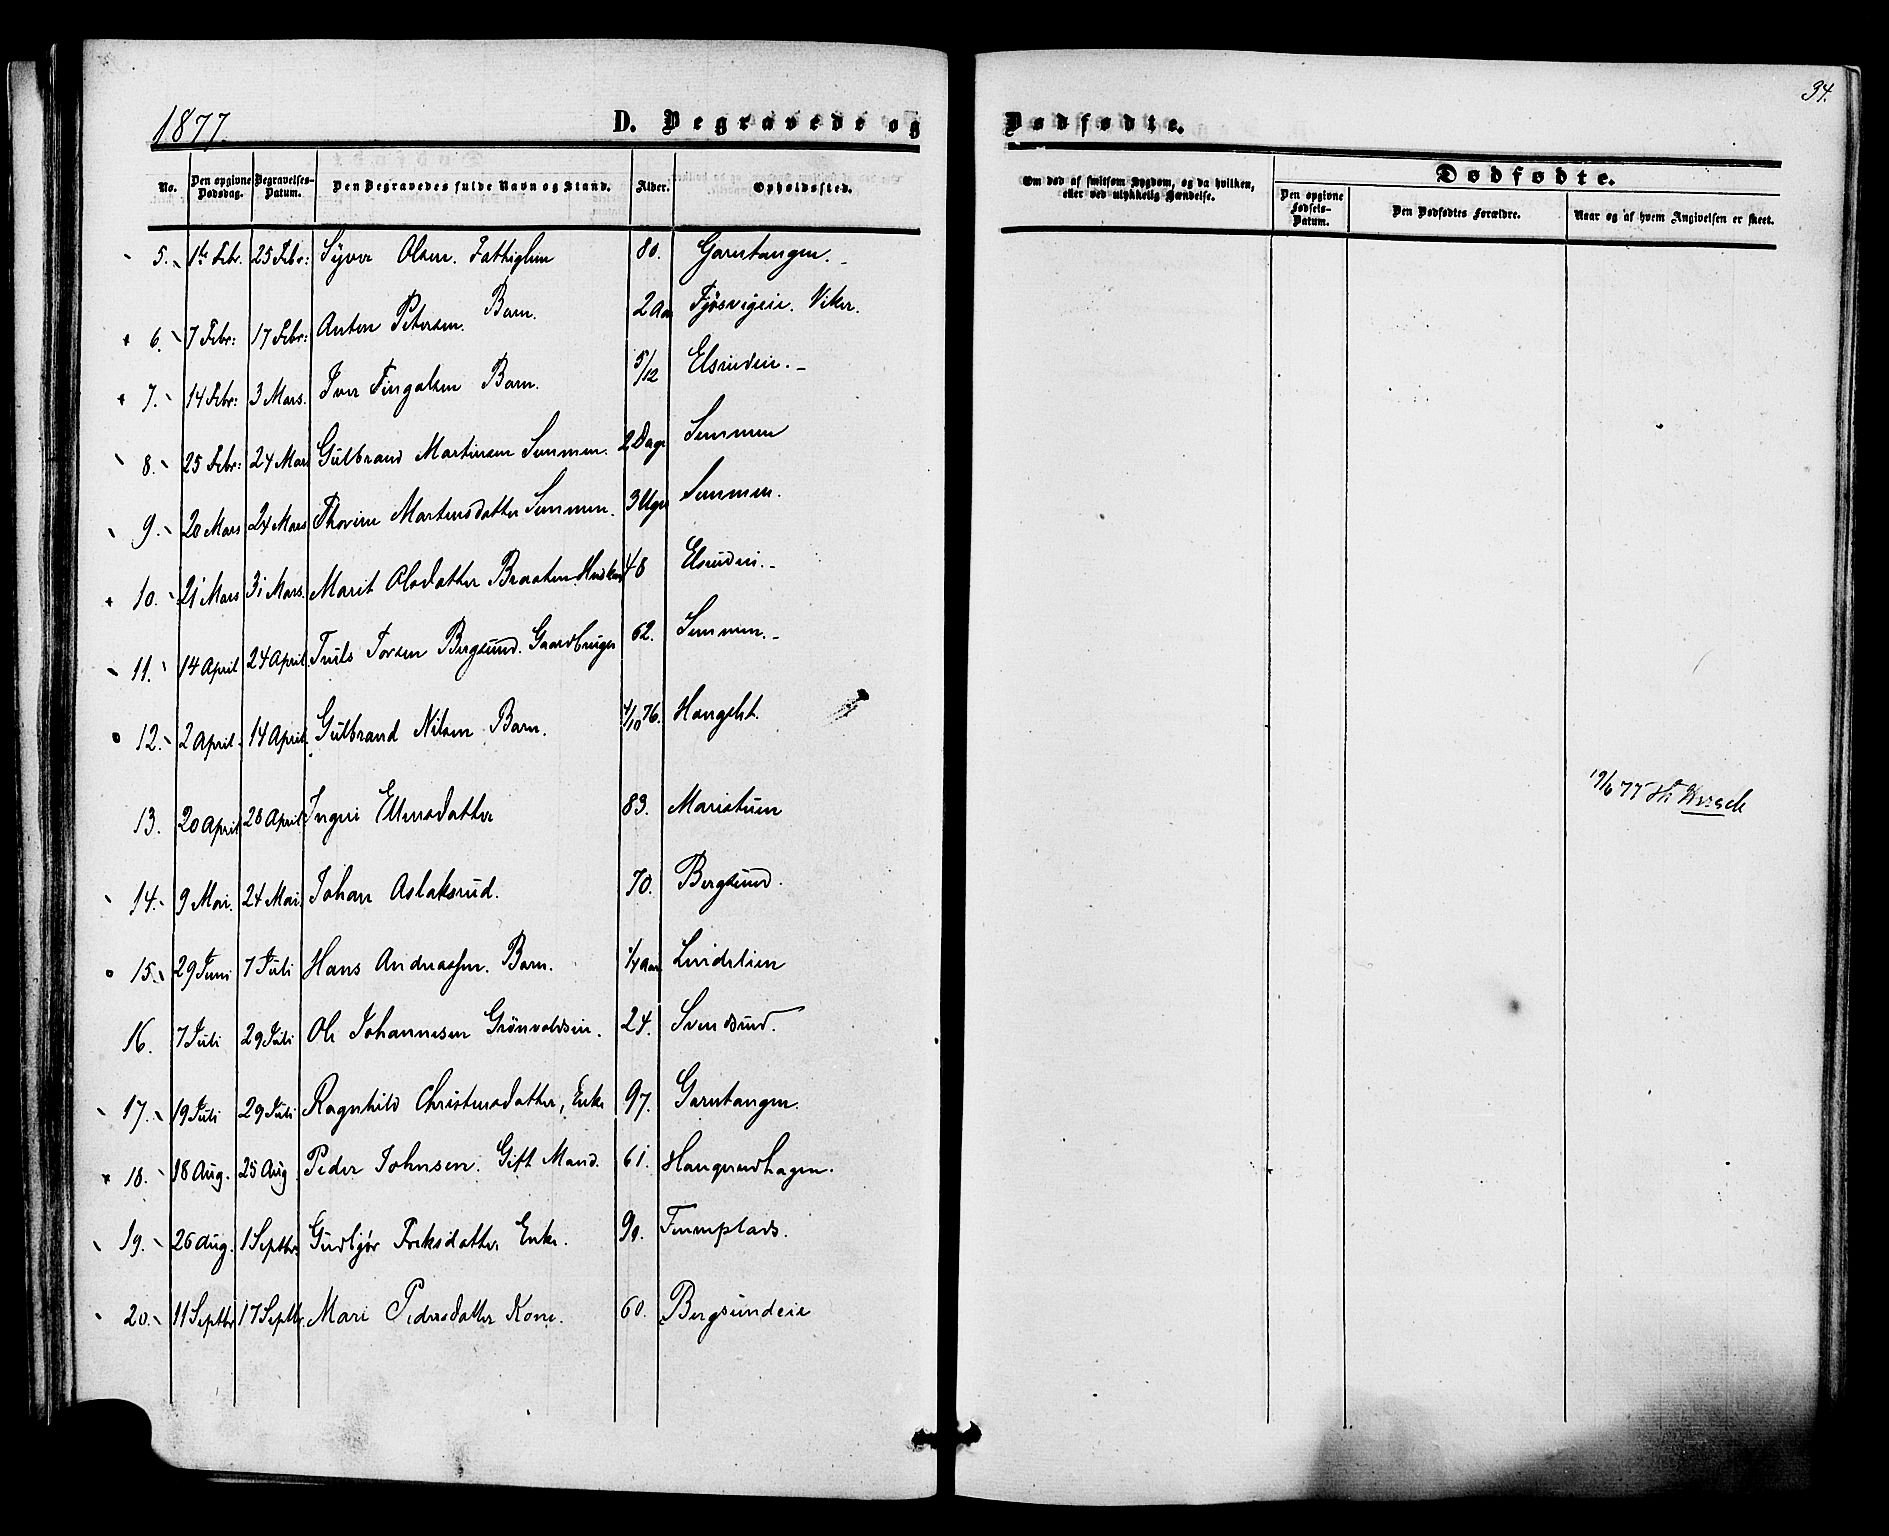 34.
1877.
D. Begravede og Dødfødte.
No. Den opgivne Dødsdag. Begravelses-Datum. Den Begravedes fulde Navn og Stand. Alder. Opholdssted. Om død af smitsom Sygdom, og da hvilken, eller ved ulykkelig Hændelse. Dødfødte. Den opgivne Fødsels-Datum. Den Dødfødtes Forældre. Naar og af hvem Angivelsen er skeet.
5. 1ste Febr. 25 Febr: Syver Olsen. Fattiglem 80. Garntangen.
6. 7 Febr: 17 Febr: Anton Petersen. Barn. 2 Aar Fjøsvigeie. Viker.
7. 14 Febr: 3 Mars. Iver Fingalsen Barn. 5/12 Elsrudeie.
8. 25 Febr: 24 Mars Gulbrand Martinsen Semmen. 2 Dage Semmen
9. 20 Mars 24 Mars Thorine Martinsdatter Semmen. 3 Uger Semmen.
10. 21 Mars 31 Mars. Marit Olsdatter Braaten 48 Elsrudei.
11. 14 April 24 April. Truls Torsen Bergsund. Gaardbruger 62. Semmen.
12. 2 April. 14 April. Gulbrand Nilsen Barn. 4/10 76.
13. 20 April 28 April Ingri Ellensdatter 83. Maristuen
14. 9 Mai. 24 Mai. Johan Aslaksrud. 70. Bergsund.
15. 29 Juni 7 Juli Hans Andreassen. Barn. 1/4 Aar Lindelien
16. 7 Juli 29 Juli Ole Johannesen Grønvoldseie. 24. Svendsrud.
17. 19 Juli 29 Juli Ragnhild Christensdatter, Enke 97. Garntangen.
18. 18 Aug. 25 Aug. Peder Johnsen. Gift Mand. 61. Haugerudhagen.
19. 26 Aug. 1 Septbr. Gudbjør Eriksdatter Enke. 90. Finnplads.
20. 11 Septbr 17 Septbr. Mari Pedersdatter Kone. 60. Bergsundeie
19/6 77